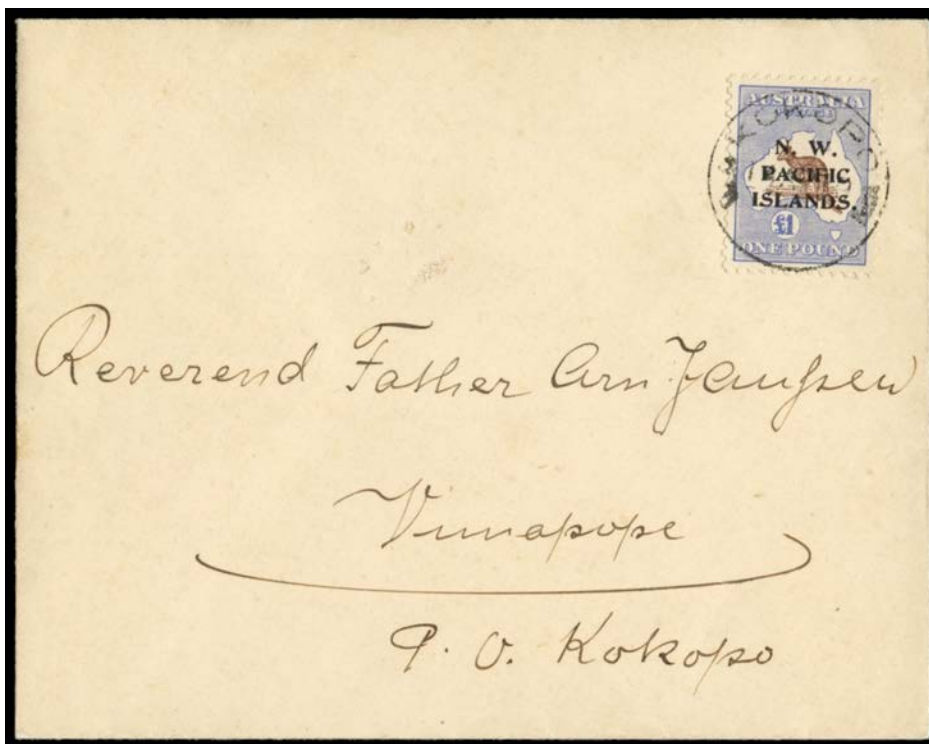 AUSTRALIA
N. W.
PACIFIC
ISLANDS.
£1
ONE POUND
KOKOPO
Reverend Father Arn. Janssen
Vunapope
P. O. Kokopo